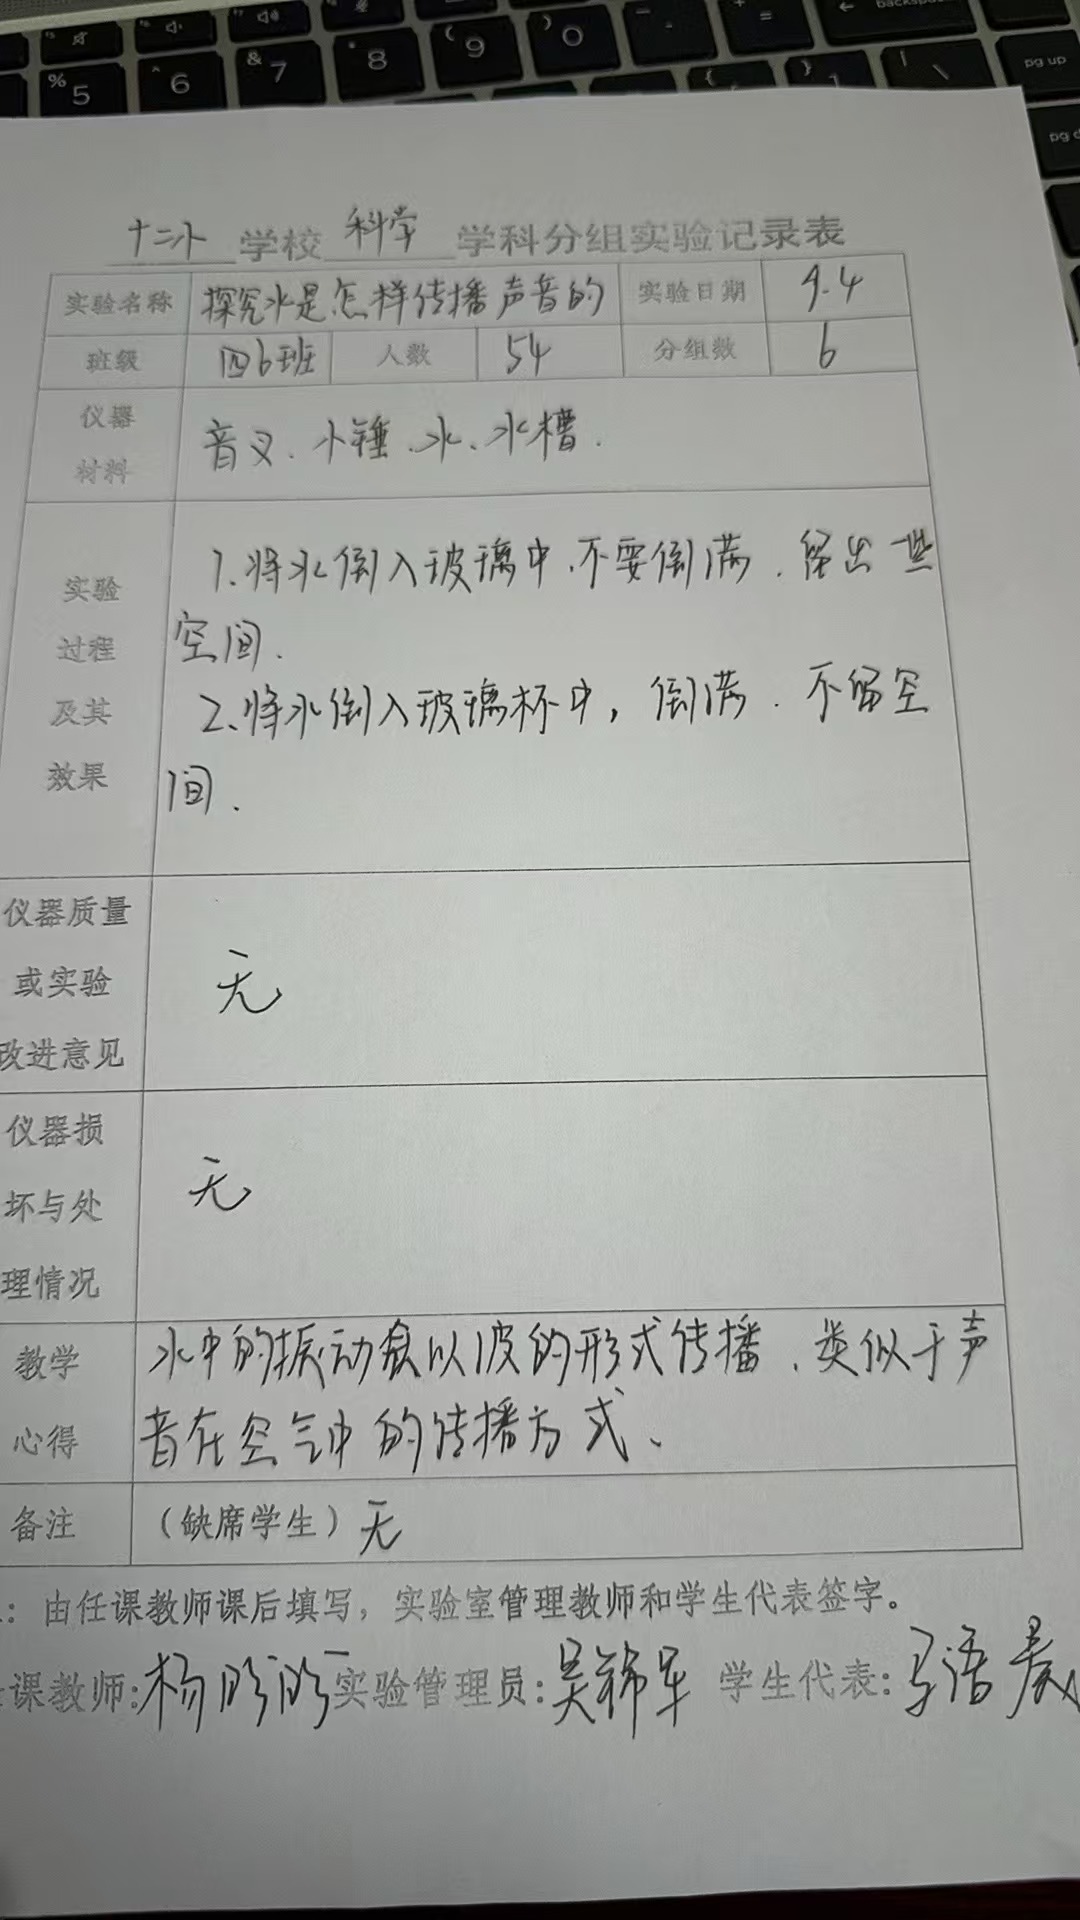 5 6 7 8 9 0 backspace
pg up
十二小 学校 科学 学科分组实验记录表
实验名称 探究水是怎样传播声音的 实验日期 9.4
班级 四6班 人数 54 分组数 6
仪器材料 音叉、小锤、水、水槽.
实验过程及其效果 1、将水倒入玻璃中,不要倒满.留出一些
空间.
2、将水倒入玻璃杯中,倒满.不留空
间.
仪器质量或实验改进意见 无
仪器损坏与处理情况 无
教学心得 水中的振动会以波的形式传播、类似于声
音在空气中的传播方式、
备注 (缺席学生)无
:由任课教师课后填写,实验室管理教师和学生代表签字。
课教师:杨 实验管理员:吴锦军 学生代表:马语